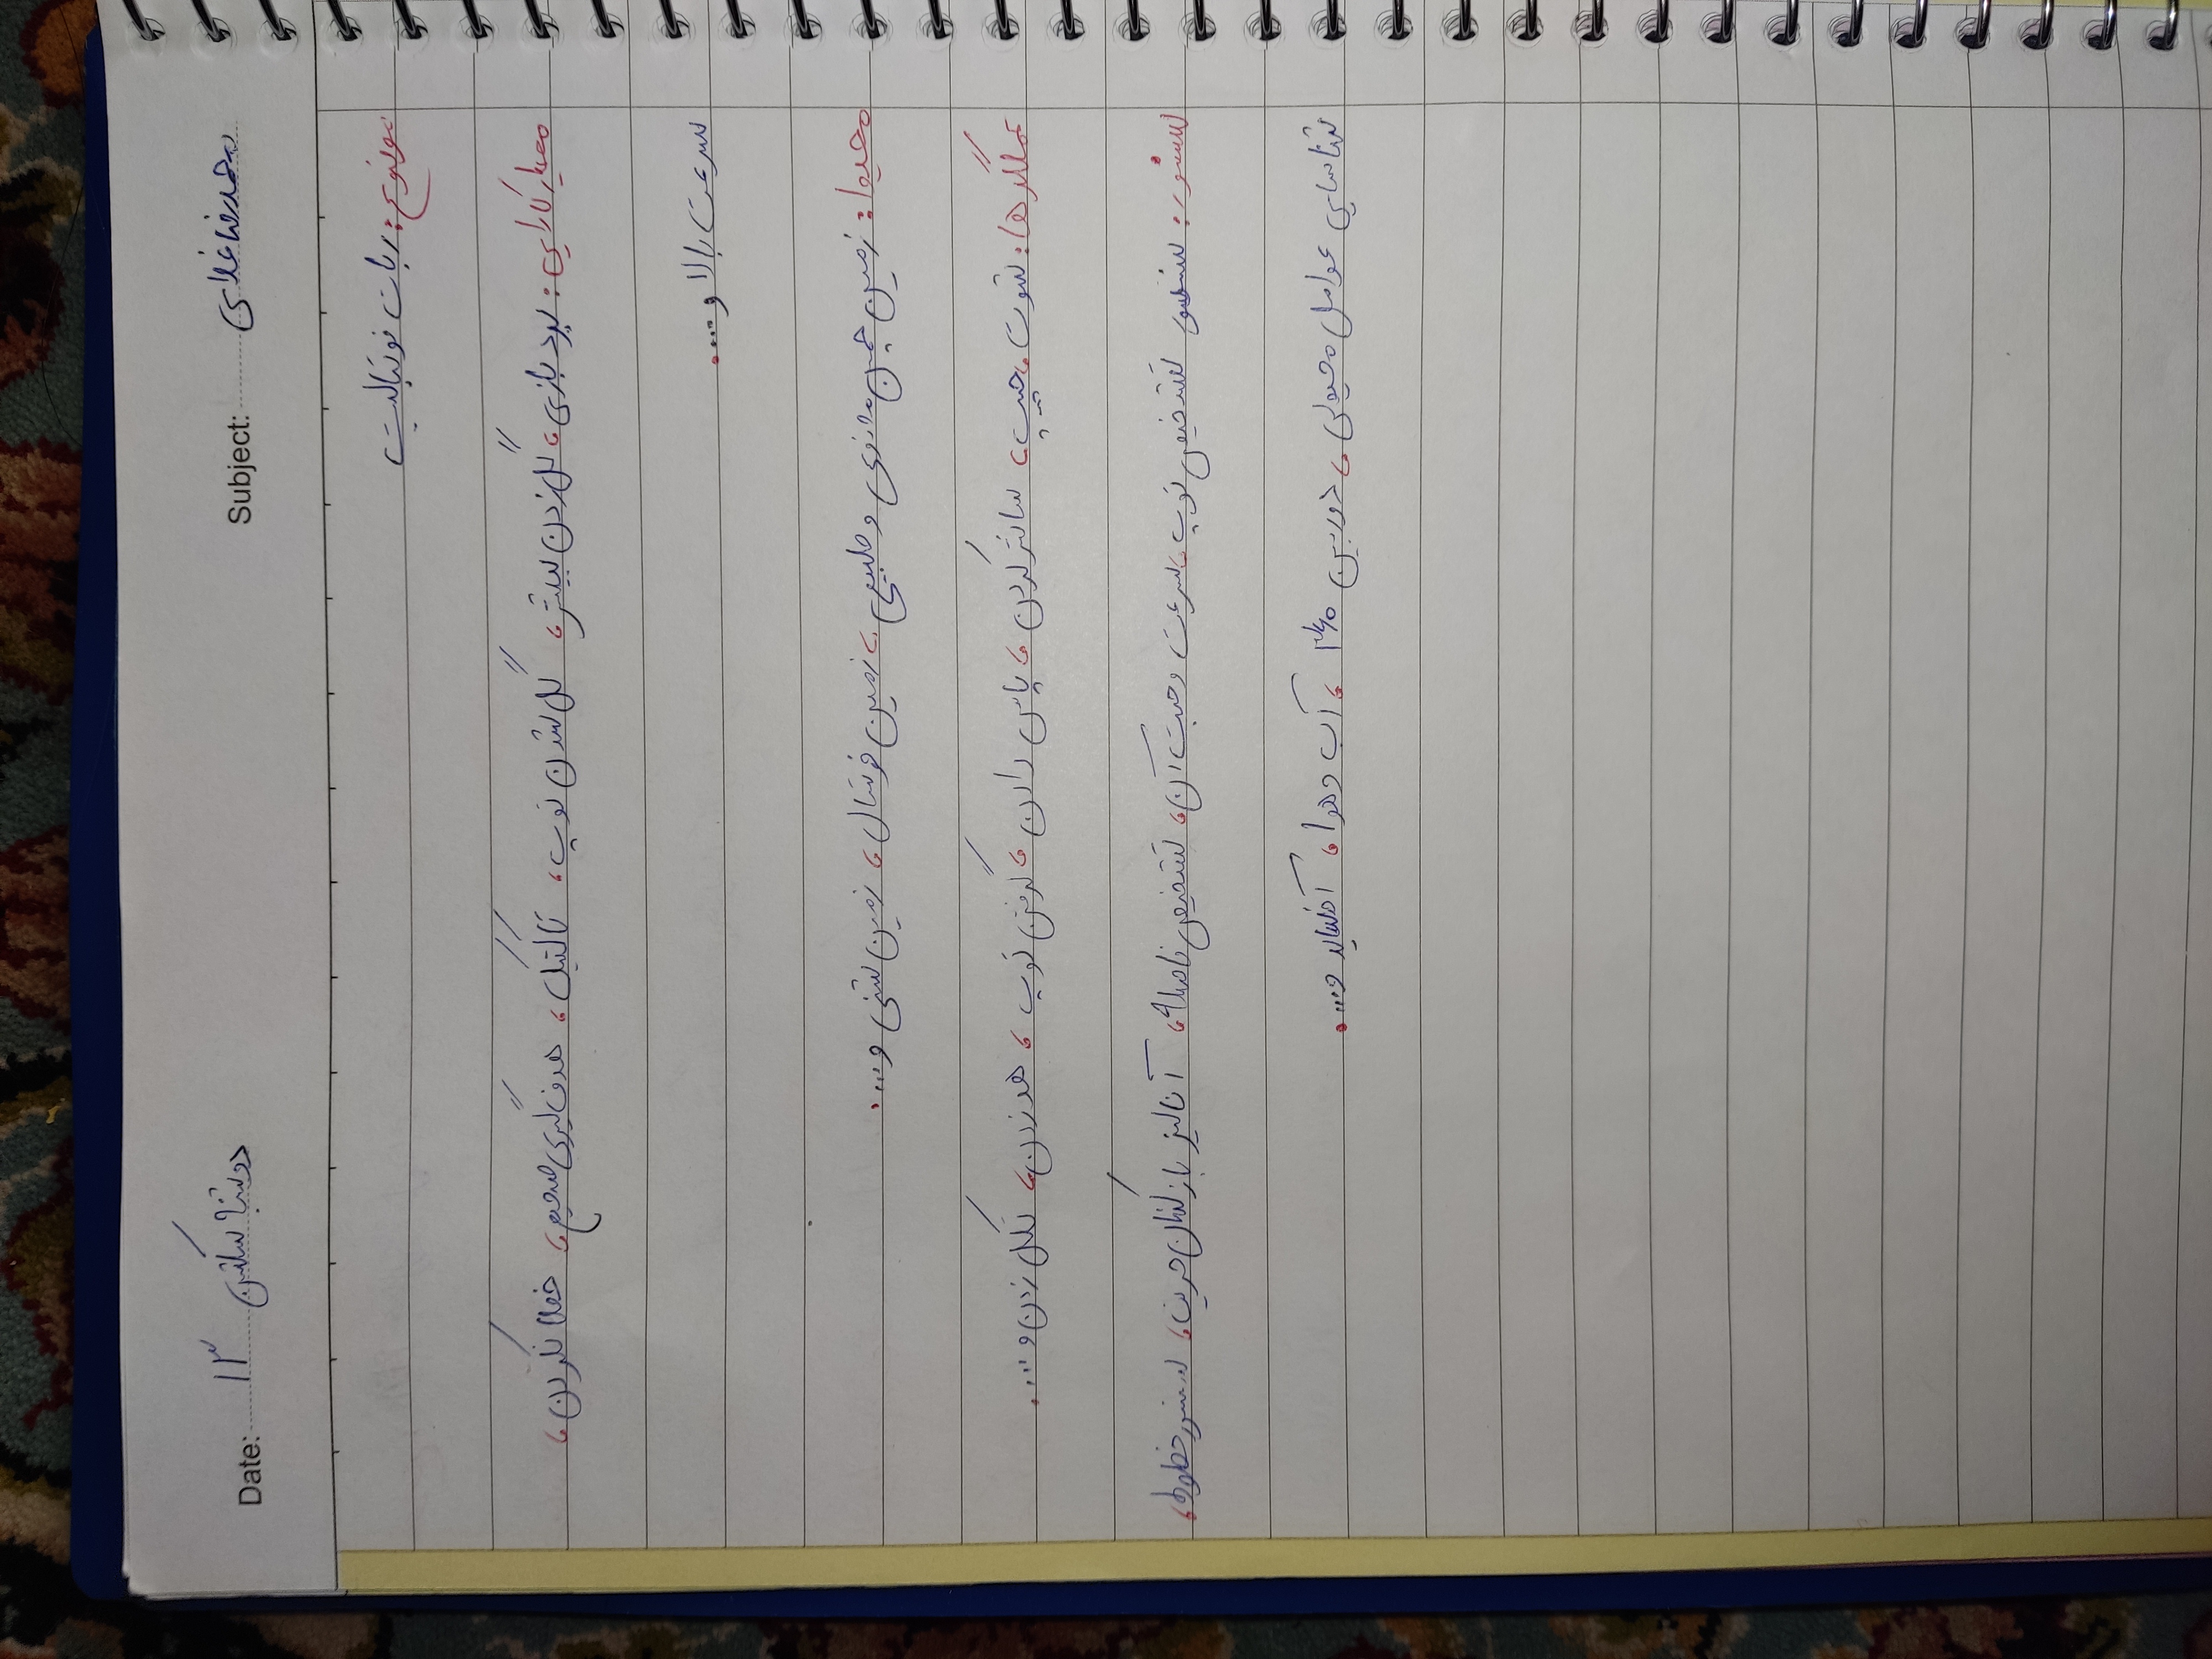 Subject: محمدرضا
Date: دوشنبه سکشن ۱۳
موضوع: ربات فوتبالیست
معیار کارایی: برد بازی، گل زدن بیشتر، گل شدن توپ، تاکتیک، هدف گیری صحیح، خطا نکردن،
سرعت بالا و....
محیط: زمین چمن مصنوعی و طبیعی، زمین فوتسال، زمین شنی و....
عملگرها: شوت، چیپ، سانتر کردن، پاس دادن، گرفتن توپ، هد زدن، تکل زدن و....
سنسور: سنسور تشخیص توپ، سرعت و جهت آن، تشخیص فاصله، آنالیز بازیکنان حریف، سنسور خطوط،
شناسایی عوامل محیطی، دوربین ۳۶۰، آب و هوا، آفساید و....